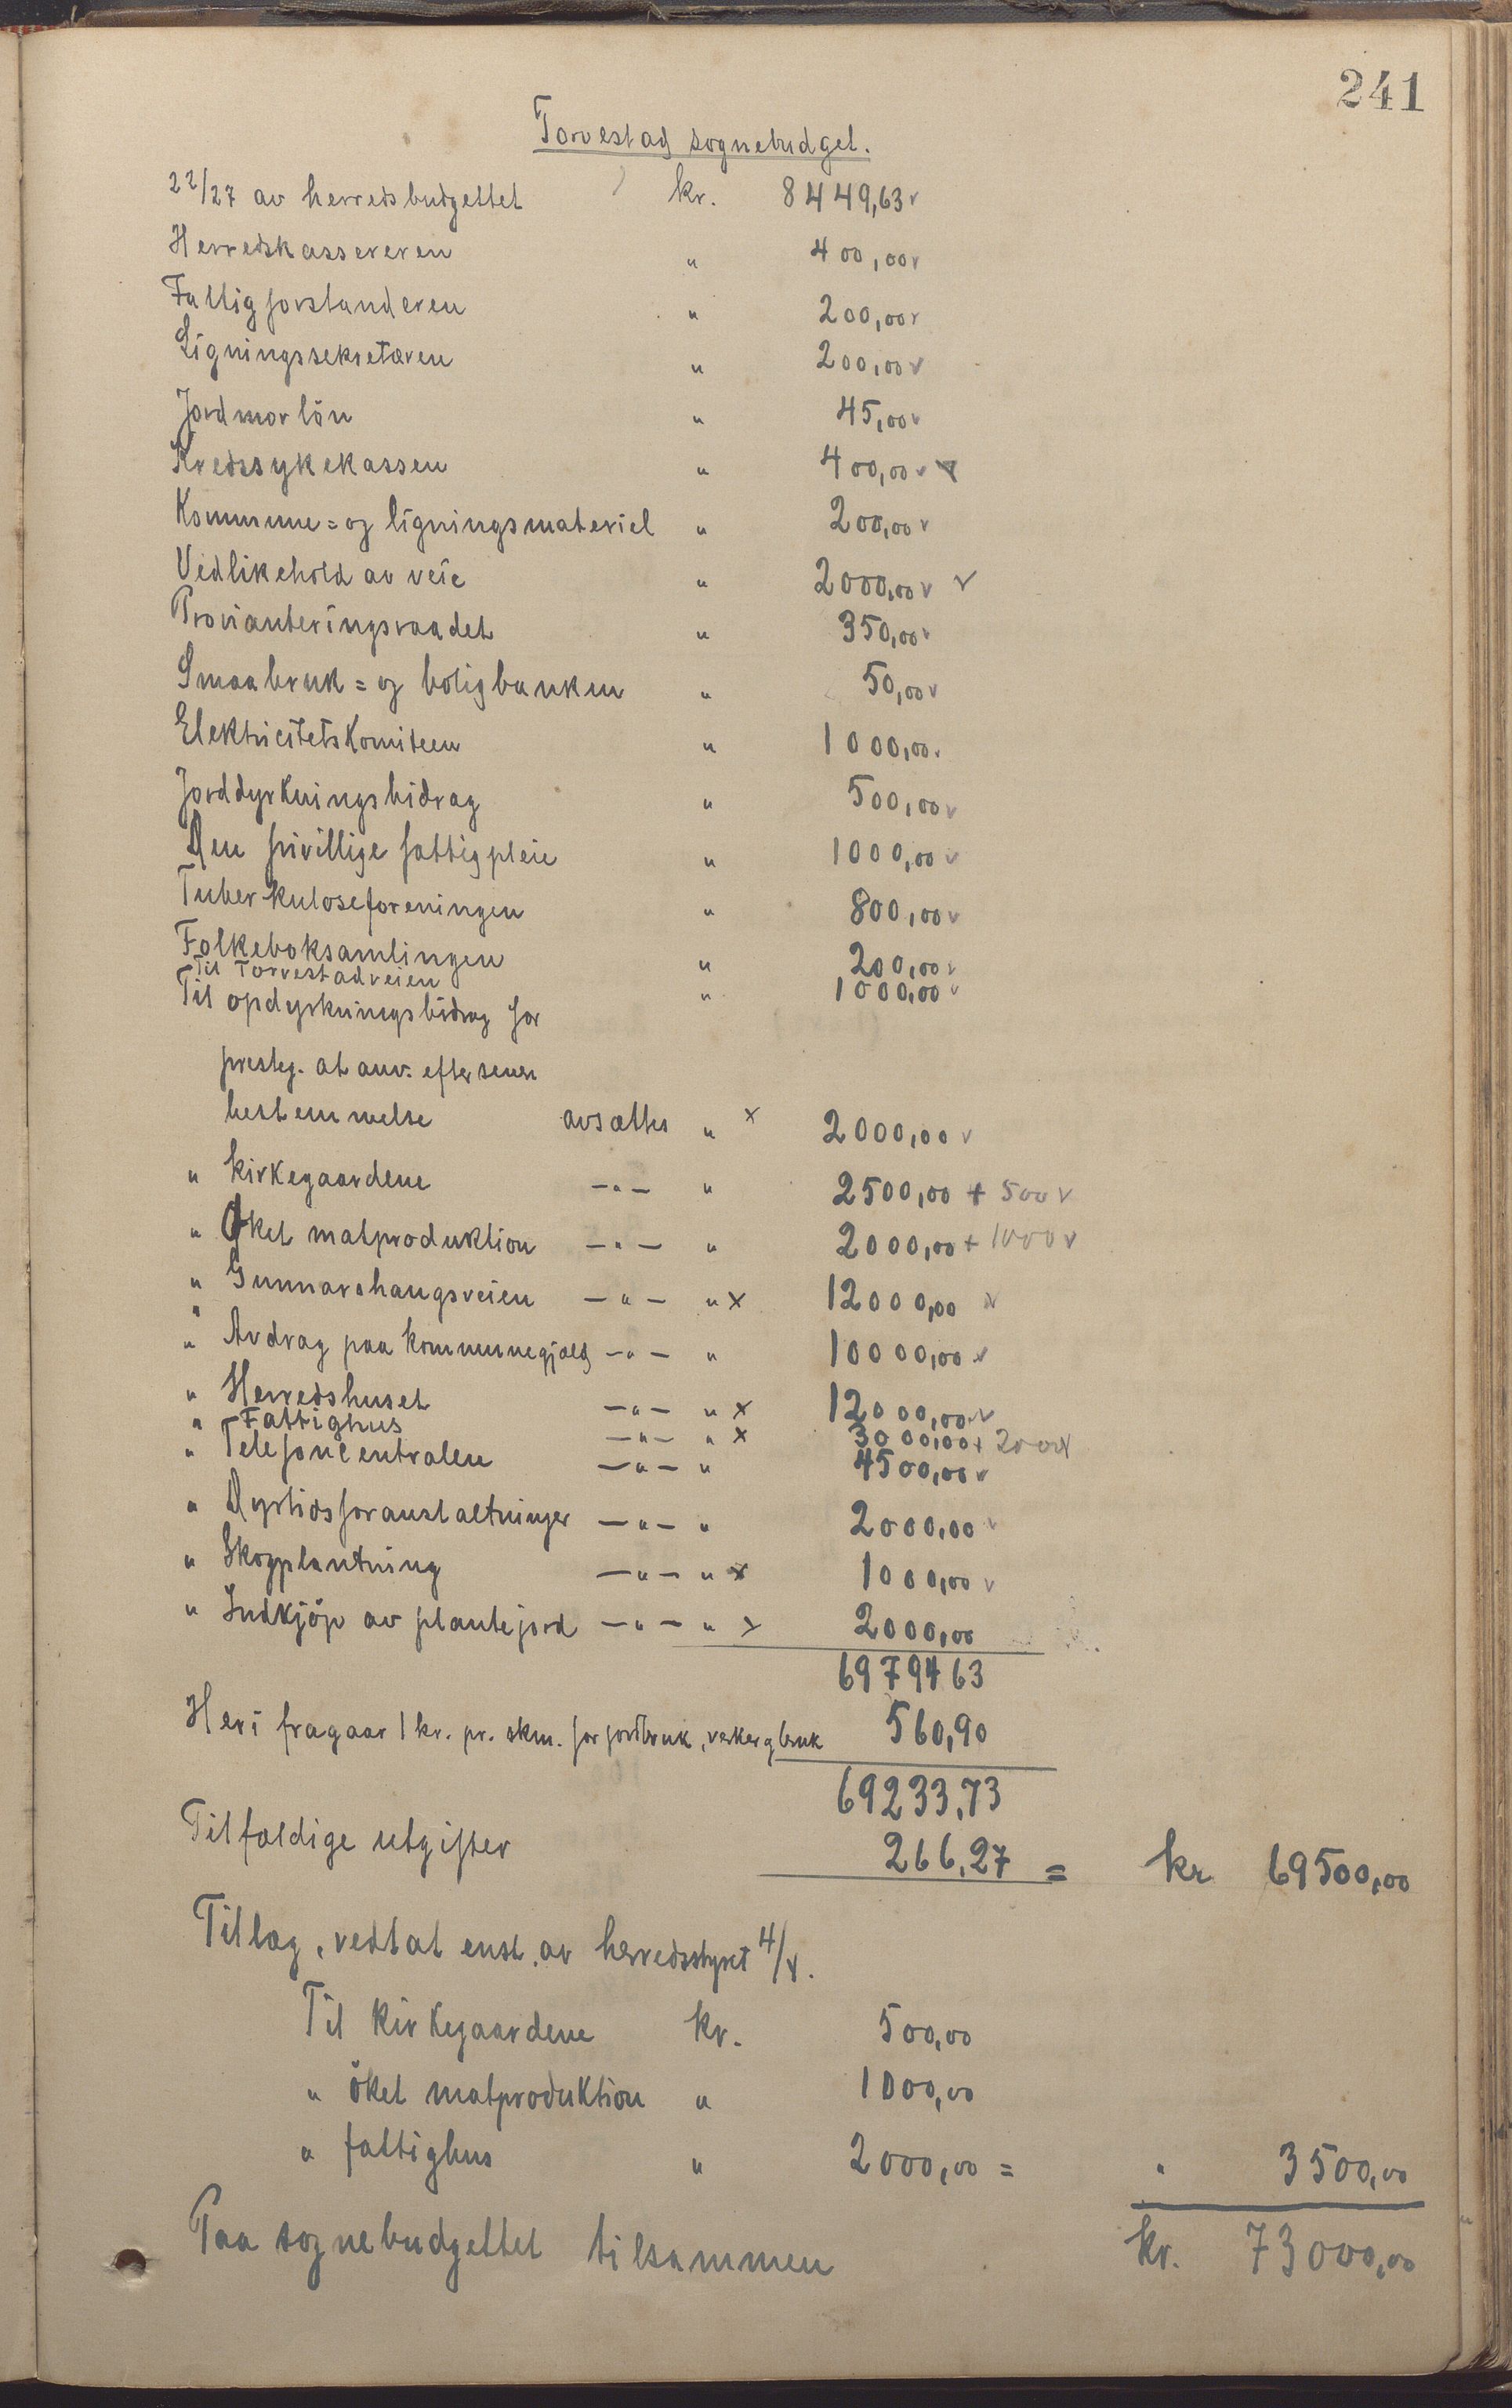 241
Torvestad sognebudget.
22/27 av herredsbudgettet kr. 8449,63 v
Herredskassereren " 400,00 v
Fattigforstanderen " 200,00 v
Ligningssekretæren " 200,00 v
Jordmorlön " 45,00 v
Kredssykekassen " 400,00 v v
Kommune= og ligningsmateriel " 200,00 v
Vedlikehold av veie " 2000,00 v v
Provianteringsraadet " 350,00 v
Smaabruk= og boligbanken " 50,00 v
Elektricitetskomiteen " 1000,00 v
Jorddyrkningsbidrag " 500,00 v
Den frivillige fattigpleie " 1000,00 v
Tuberkuloseforeningen " 800,00 v
Folkeboksamlingen " 200,00 v
Til Torvestadveien " 1000,00 v
Til opdyrkningsbidrag for
presteg. at anv. efter senere
bestemmelse avsættes " x 2000,00 v
" kirkegaardene —"— " 2500,00 + 500 v
" Øket matproduktion —"— " 2000,00 + 1000 v
" Gunnarshaugsveien —"— " x 12000,00 v
" Avdrag paa kommunegjæld —"— " 10000,00 v
" Herredshuset —"— " x 12000,00 v
" Fattighus —"— " x 3000,00 + 2000 v
" Telefoncentralen —"— " 4500,00 v
" Dyrtidsforanstaltninger —"— " 2000,00 v
" Skogplantning —"— " x 1000,00 v
" Indkjöp av plantejord —"— " x 2000,00
6979463
Heri fragaar 1 kr. pr. skm. for jordbruk, verker og bruk 560,90
69233,73
Tilfældige utgifter 266,27 = kr 69500,00
Tillæg, vedtat enst. av herredsstyret 4/4.
Til kirkegaardene kr. 500,00
" öket matproduktion " 1000,00
" fattighus " 2000,00 = " 3500,00
Paa sognebudgettet tilsammen kr. 73000,00